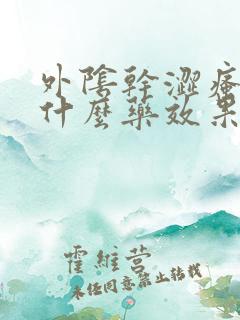 外陰幹澀瘙
什麼藥效果
霍維營
未任同意禁止转载